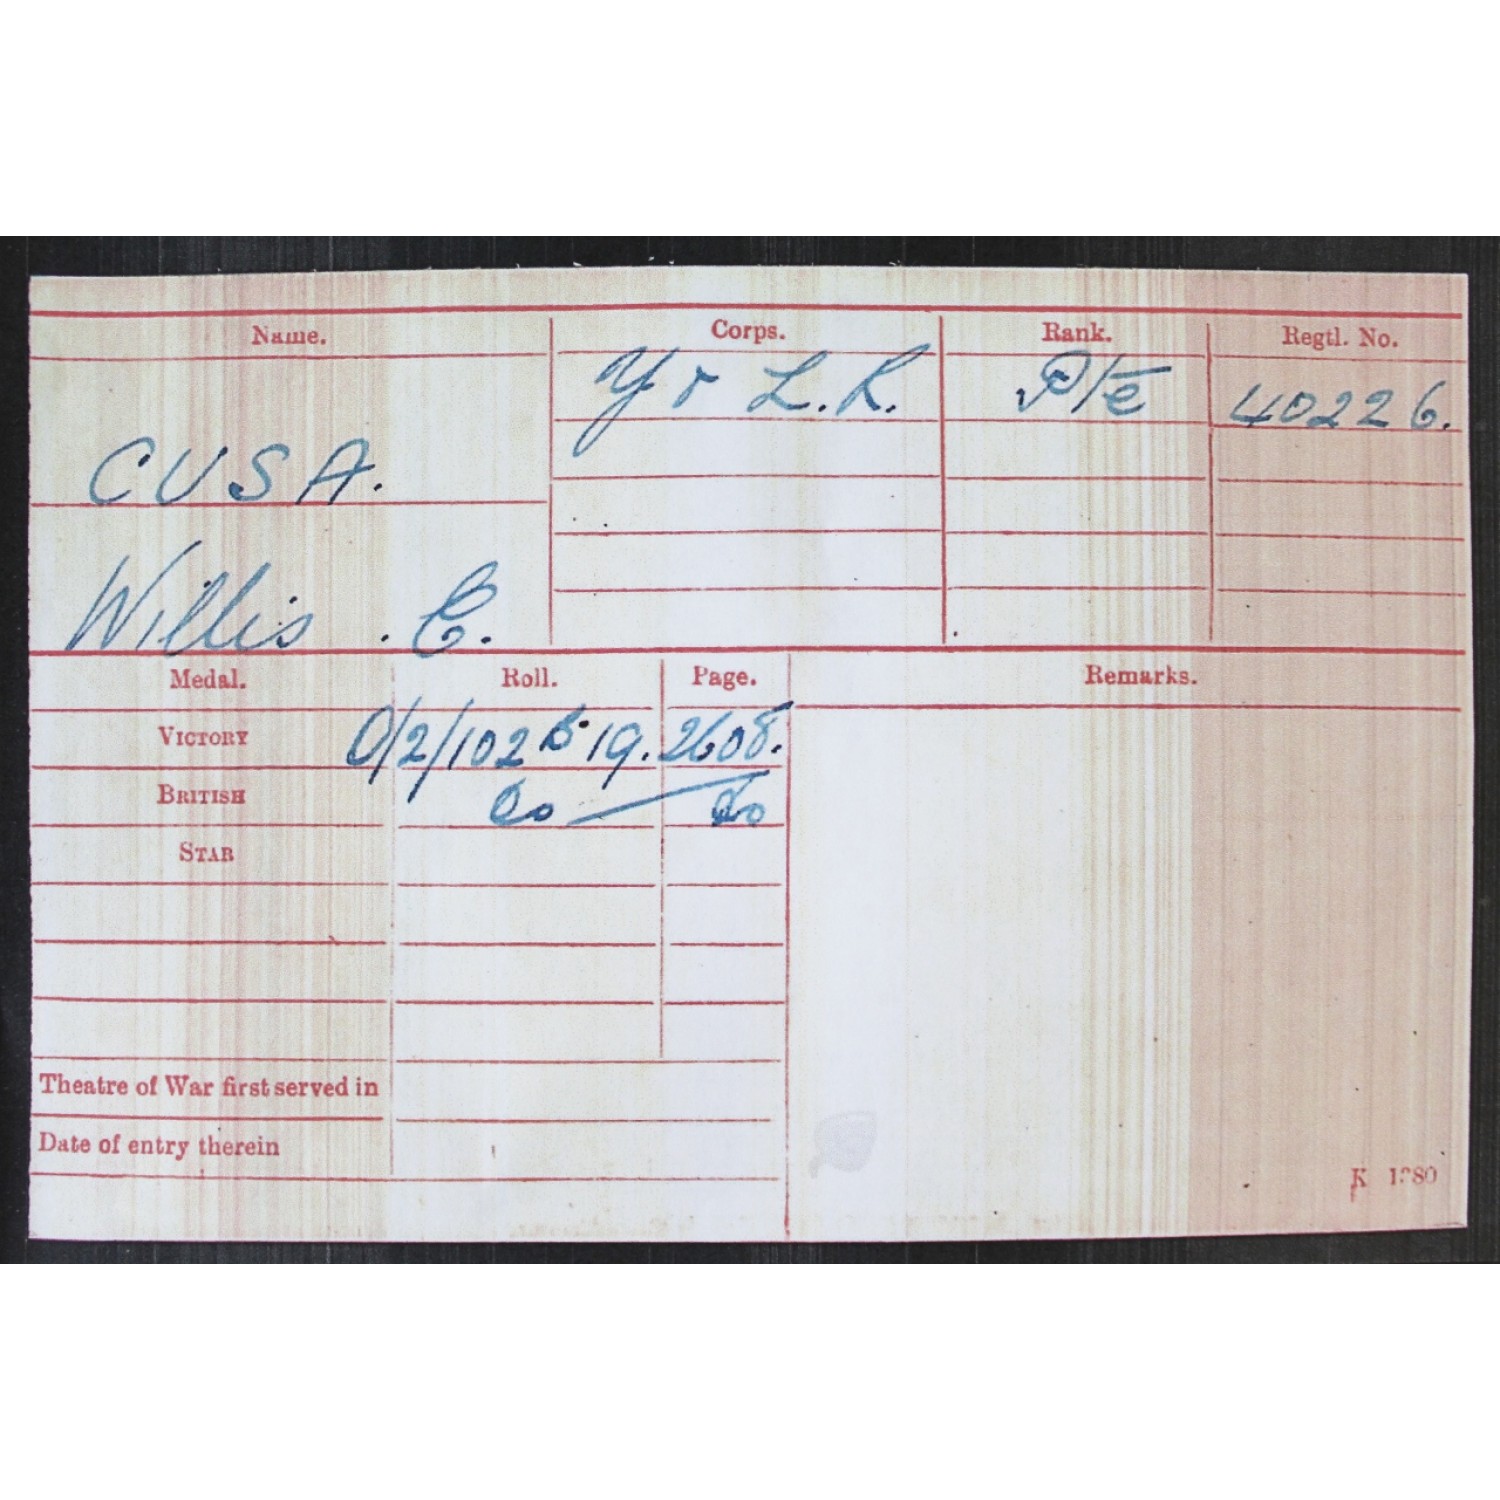 Name. Corps. Rank. Regtl. No.
Y & L.R. Pte 40226.
CUSA.
Willis . C.
Medal. Roll. Page. Remarks.
VICTORY O/2/102 B 19. 2608.
BRITISH do do
STAR
Theatre of War first served in
Date of entry therein
K 1380